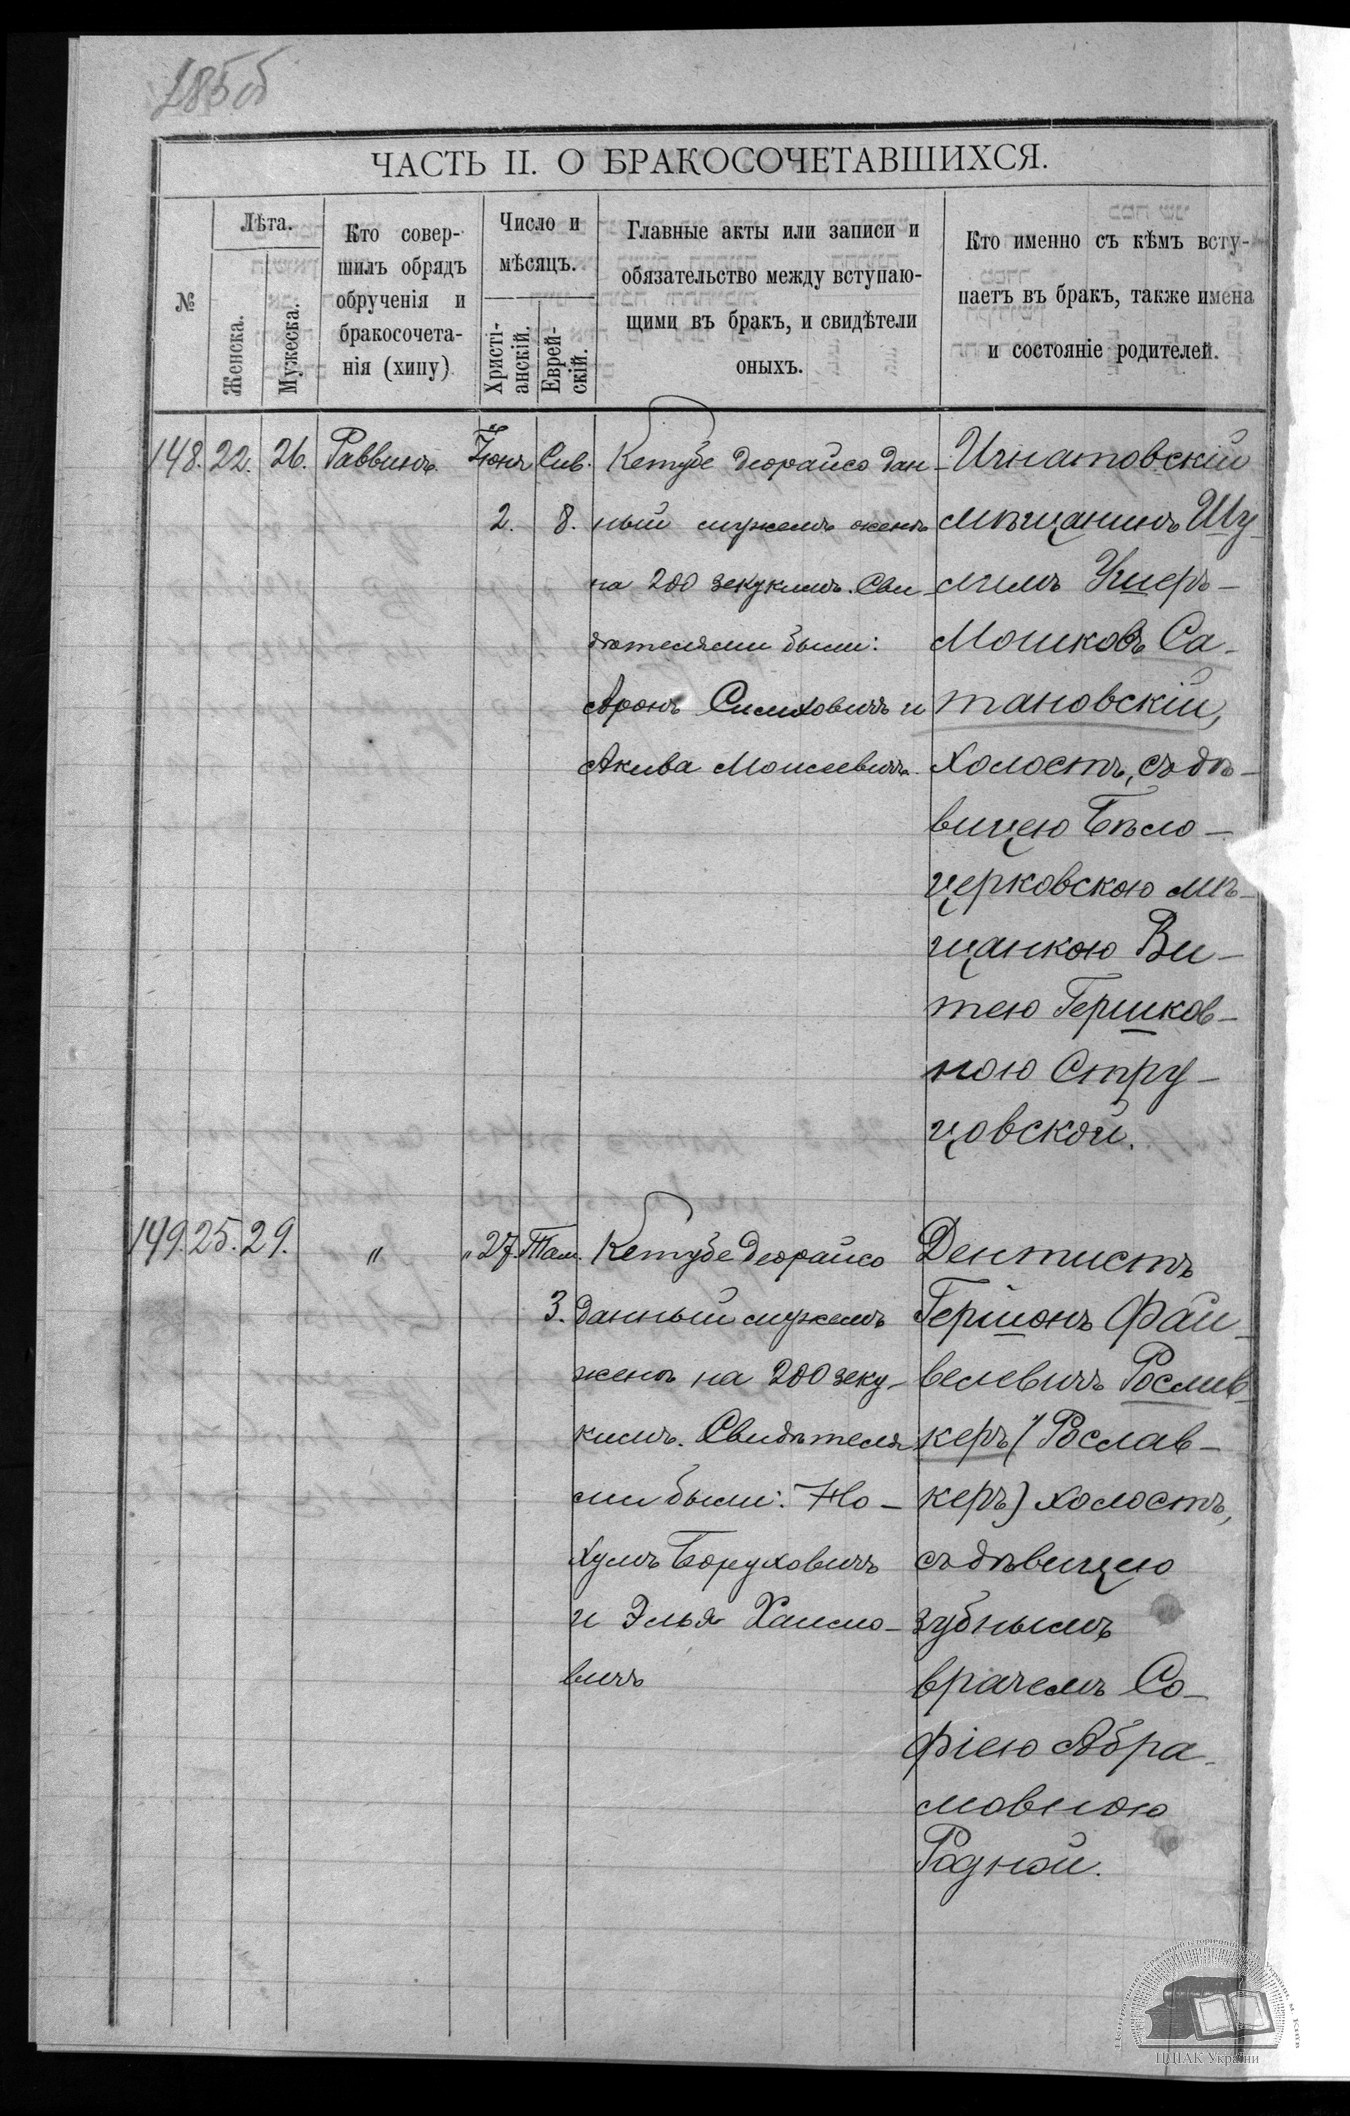 185об
ЧАСТЬ II. О БРАКОСОЧЕТАВШИХСЯ.
№
Лѣта.
Женска.
Мужеска.
Кто совер-
шилъ обрядъ
обрученія и
бракосочета-
нія (хипу)
Число и
мѣсяцъ.
Христі-
анскій.
Еврей-
скій.
Главные акты или записи и
обязательство между вступаю-
щими въ бракъ, и свидѣтели
оныхъ.
Кто именно съ кѣмъ всту-
паетъ въ бракъ, также имена
и состояніе родителей.
148. 22. 26. Раввинъ. Іюня Сив.
2. 8.
Кетубе деорайсо дан-
ный мужемъ женѣ
на 200 зекукимъ. Сви-
дѣтелями были:
Аронъ Симховичъ и
Акива Моисеевичъ.
Игнатовскій
мѣщанинъ Шу-
лимъ Ушеръ-
Мошковъ Са-
тановскій,
холостъ, съ дѣ-
вицею Бѣло-
церковскою мѣ-
щанкою Ви-
тею Гершков-
ною Стру-
цовской.
149. 25. 29. „ „ 27. Там.
3.
Кетубе деорайсо
данный мужемъ
женѣ на 200 зеку-
кимъ. Свидѣтеля-
ми были: Но-
хумъ Боруховичъ
и Элья Хаимо-
вичъ
Дентистъ
Гершонъ Фай-
велевичъ Рослив-
керъ (Рослав-
керъ) холостъ,
съ дѣвицею
зубнымъ
врачемъ Со-
фіею Абра-
мовною
Родной.
ЦДІАК України